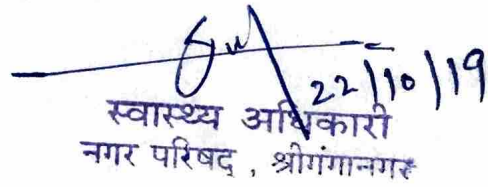 22/10/19
स्वास्थ्य अधिकारी
नगर परिषद्, श्रीगंगानगर